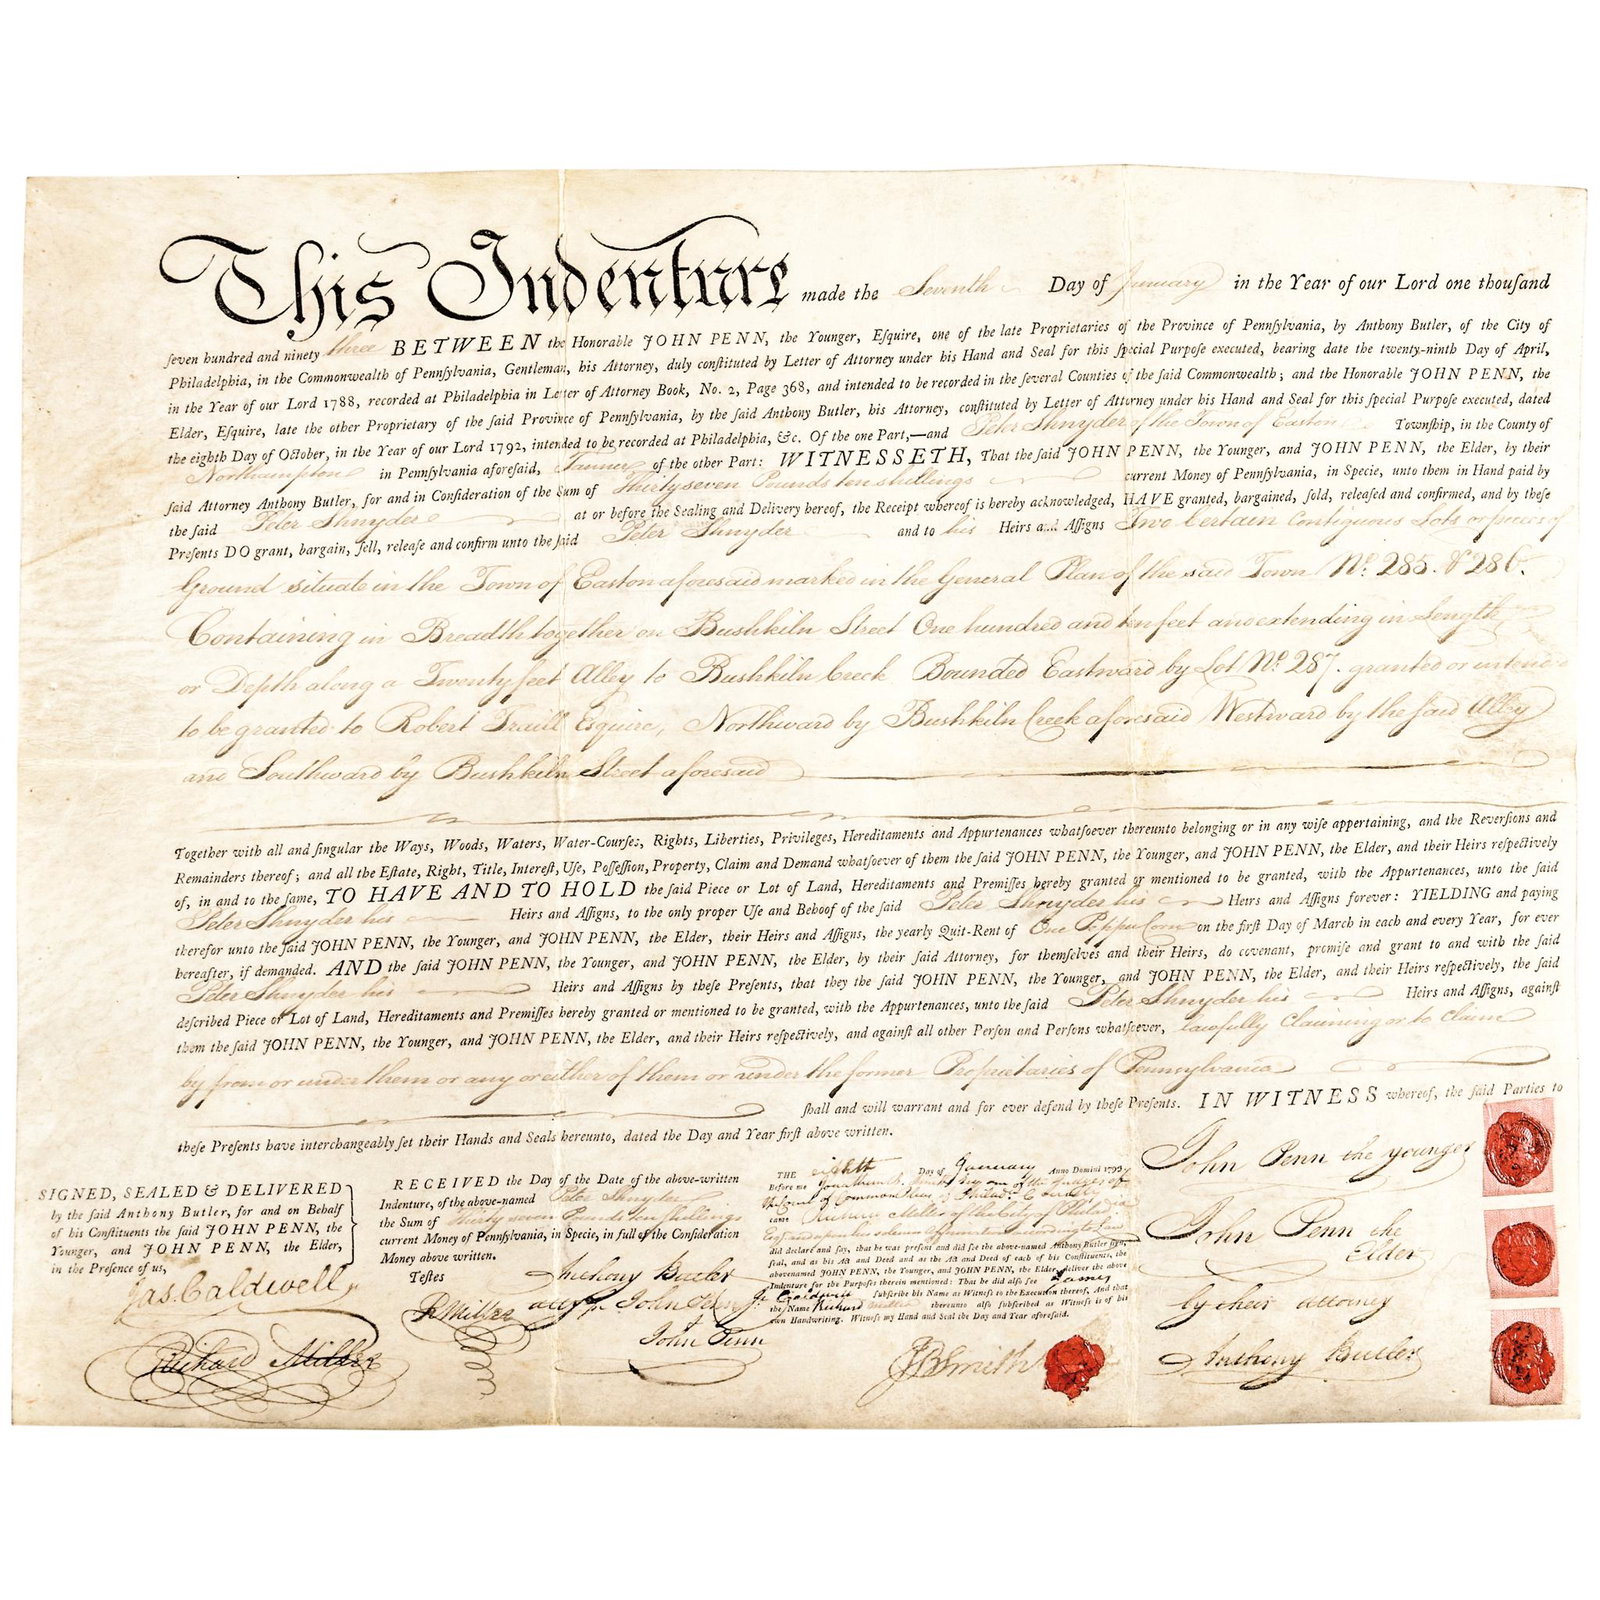 This Indenture made the Seventh Day of January in the Year of our Lord one thouſand
ſeven hundred and ninety three BETWEEN the Honorable JOHN PENN, the Younger, Eſquire, one of the late Proprietaries of the Province of Pennſylvania, by Anthony Butler, of the City of
Philadelphia, in the Commonwealth of Pennſylvania, Gentleman, his Attorney, duly conſtituted by Letter of Attorney under his Hand and Seal for this ſpecial Purpoſe executed, bearing date the twenty-ninth Day of April,
in the Year of our Lord 1788, recorded at Philadelphia in Letter of Attorney Book, No. 2, Page 368, and intended to be recorded in the ſeveral Counties of the ſaid Commonwealth; and the Honorable JOHN PENN, the
Elder, Eſquire, late the other Proprietary of the ſaid Province of Pennſylvania, by the ſaid Anthony Butler, his Attorney, conſtituted by Letter of Attorney under his Hand and Seal for this ſpecial Purpoſe executed, dated
the eighth Day of October, in the Year of our Lord 1792, intended to be recorded at Philadelphia, &c. Of the one Part,—and Peter Shnyder of the Town of Easton Townſhip, in the County of
Northampton in Pennſylvania aforeſaid, Tanner of the other Part: WITNESSETH, That the ſaid JOHN PENN, the Younger, and JOHN PENN, the Elder, by their
ſaid Attorney Anthony Butler, for and in Conſideration of the Sum of Thirty seven Pounds ten shillings current Money of Pennſylvania, in Specie, unto them in Hand paid by
the ſaid Peter Shnyder at or before the Sealing and Delivery hereof, the Receipt whereof is hereby acknowledged, HAVE granted, bargained, ſold, releaſed and confirmed, and by theſe
Preſents DO grant, bargain, ſell, releaſe and confirm unto the ſaid Peter Shnyder and to his Heirs and Aſſigns Two Certain Contiguous Lots or pieces of
Ground situate in the Town of Easton aforesaid marked in the General Plan of the said Town No. 285. & 286.
Containing in Breadth together on Bushkiln Street One hundred and ten feet and extending in Length
or Depth along a Twenty feet Alley to Bushkiln Creek Bounded Eastward by Lot No. 287. granted or intended
to be granted to Robert Traill Esquire, Northward by Bushkiln Creek aforesaid Westward by the said Alley
and Southward by Bushkiln Street aforesaid
Together with all and ſingular the Ways, Woods, Waters, Water-Courſes, Rights, Liberties, Privileges, Hereditaments and Appurtenances whatſoever thereunto belonging or in any wiſe appertaining, and the Reverſions and
Remainders thereof; and all the Eſtate, Right, Title, Intereſt, Uſe, Poſſeſſion, Property, Claim and Demand whatſoever of them the ſaid JOHN PENN, the Younger, and JOHN PENN, the Elder, and their Heirs reſpectively
of, in and to the ſame, TO HAVE AND TO HOLD the ſaid Piece or Lot of Land, Hereditaments and Premiſſes hereby granted or mentioned to be granted, with the Appurtenances, unto the ſaid
Peter Shnyder his Heirs and Aſſigns, to the only proper Uſe and Behoof of the ſaid Peter Shnyder his Heirs and Aſſigns forever: YIELDING and paying
therefor unto the ſaid JOHN PENN, the Younger, and JOHN PENN, the Elder, their Heirs and Aſſigns, the yearly Quit-Rent of One Pepper Corn on the firſt Day of March in each and every Year, for ever
hereafter, if demanded. AND the ſaid JOHN PENN, the Younger, and JOHN PENN, the Elder, by their ſaid Attorney, for themſelves and their Heirs, do covenant, promiſe and grant to and with the ſaid
Peter Shnyder his Heirs and Aſſigns by theſe Preſents, that they the ſaid JOHN PENN, the Younger, and JOHN PENN, the Elder, and their Heirs reſpectively, the ſaid
deſcribed Piece or Lot of Land, Hereditaments and Premiſſes hereby granted or mentioned to be granted, with the Appurtenances, unto the ſaid Peter Shnyder his Heirs and Aſſigns, againſt
them the ſaid JOHN PENN, the Younger, and JOHN PENN, the Elder, and their Heirs reſpectively, and againſt all other Perſon and Perſons whatſoever, lawfully Claiming or to claim
by from or under them or any or either of them or under the former Proprietaries of Pennsylvania
ſhall and will warrant and for ever defend by theſe Preſents. IN WITNESS whereof, the ſaid Parties to
theſe Preſents have interchangeably ſet their Hands and Seals hereunto, dated the Day and Year firſt above written.
SIGNED, SEALED & DELIVERED
by the ſaid Anthony Butler, for and on Behalf
of his Conſtituents the ſaid JOHN PENN, the
Younger, and JOHN PENN, the Elder,
in the Preſence of us,
Jas. Caldwell
Richard Miller
RECEIVED the Day of the Date of the above-written
Indenture, of the above-named Peter Shnyder
the Sum of Thirty seven Pounds ten Shillings
current Money of Pennſylvania, in Specie, in full of the Conſideration
Money above written.
Teſtes
Anthony Butler
R Miller
atty for John Penn Jr
John Penn
THE eighth Day of January Anno Domini 1793
Before me Jonathan B. Smith Esq one of the Judges of
the Court of Common Pleas of Philada. County
came Richard Miller of the City of Philada
Esq and upon his solemn affirmation according to Law
did declare and ſay, that he was preſent and did ſee the above-named Anthony Butler ſign,
ſeal, and as his Act and Deed and as the Act and Deed of each of his Conſtituents, the
abovenamed JOHN PENN, the Younger, and JOHN PENN, the Elder, deliver the above
Indenture for the Purpoſes therein mentioned: That he did alſo ſee James
Caldwell ſubſcribe his Name as Witneſs to the Execution thereof, And that
the Name Richard Miller thereunto alſo ſubſcribed as Witneſs is of his
own Handwriting. Witneſs my Hand and Seal the Day and Year aforeſaid.
J B Smith
John Penn the younger
John Penn the
Elder
by their attorney
Anthony Butler